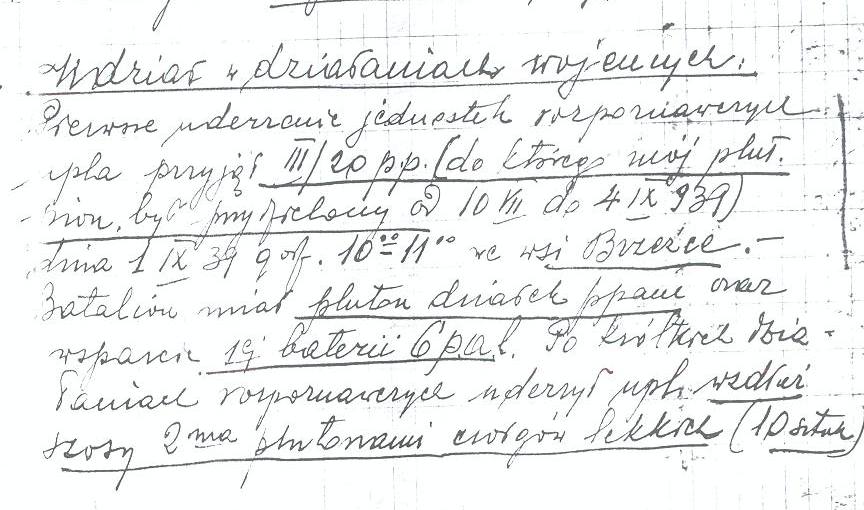 Udział w działaniach wojennych.
Pierwsze uderzenie jednostek rozpoznawczych
npla przyjął III/20 p.p. (do którego mój plut.
pion. był przydzielony od 10 VII do 4 IX 939)
dnia 1 IX 39 godz. 10⁰⁰-11⁰⁰ we wsi Brzeźce.-
Batalion miał pluton działek ppanc oraz
wsparcie 1ej baterii 6 p.a.l. Po krótkich dzia-
łaniach rozpoznawczych uderzył npl. wzdłuż
szosy 2ma plutonami czołgów lekkich (10 sztuk)